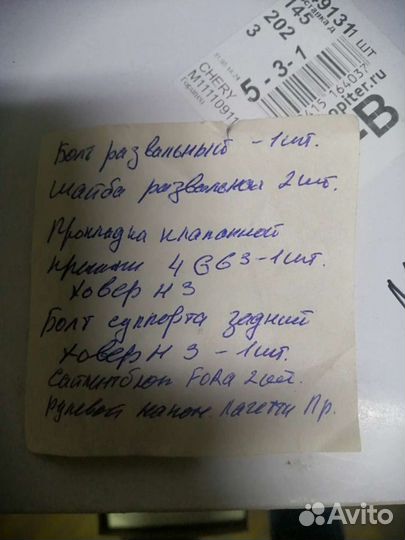 91311 шт
145
202
3
5-3-1
CHERY
M11110911
415 164037
piter.ru
Болт развальный - 1шт.
шайба развальная 2шт.
Прокладка клапанной
крышки 4G63 - 1шт.
Ховер Н3
Болт суппорта задний
Ховер Н3 - 1шт.
Сайлентблок FoRa 2шт.
Рулевой након. Лачетти Пр.
Avito